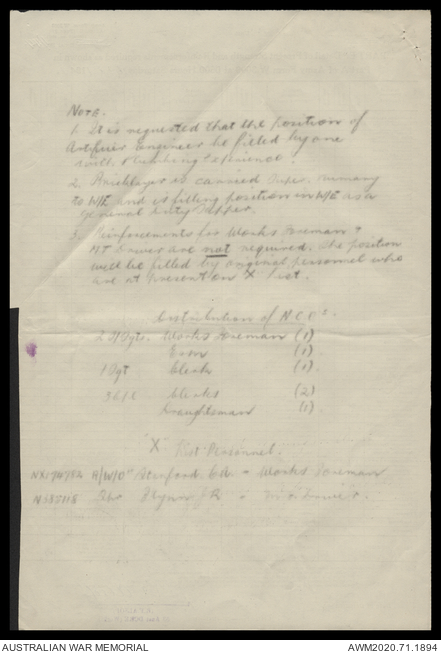 Note.
1. It is requested that the position of
Artificer Engineer be filled by one
with Plumbing Experience.
2. Bricklayer is carried super numary
to W/E and is filling position in W/E as a
General Duty Sapper.
3. Reinforcements for Works Foreman &
MT Driver are not required. The position
will be filled by original personnel who
are at present on "X" list.
Distribution of N.C.O's.
2 S/Sgts. Works Foreman (1)
(1).
1 Sgt Clerk (1).
3 Clerks (2)
Draughtsman (1).
"X" List Personnel.
A/W/O" - Works Foreman
Spr Flynn J R - Driver.
AUSTRALIAN WAR MEMORIAL
AWM2020.71.1894